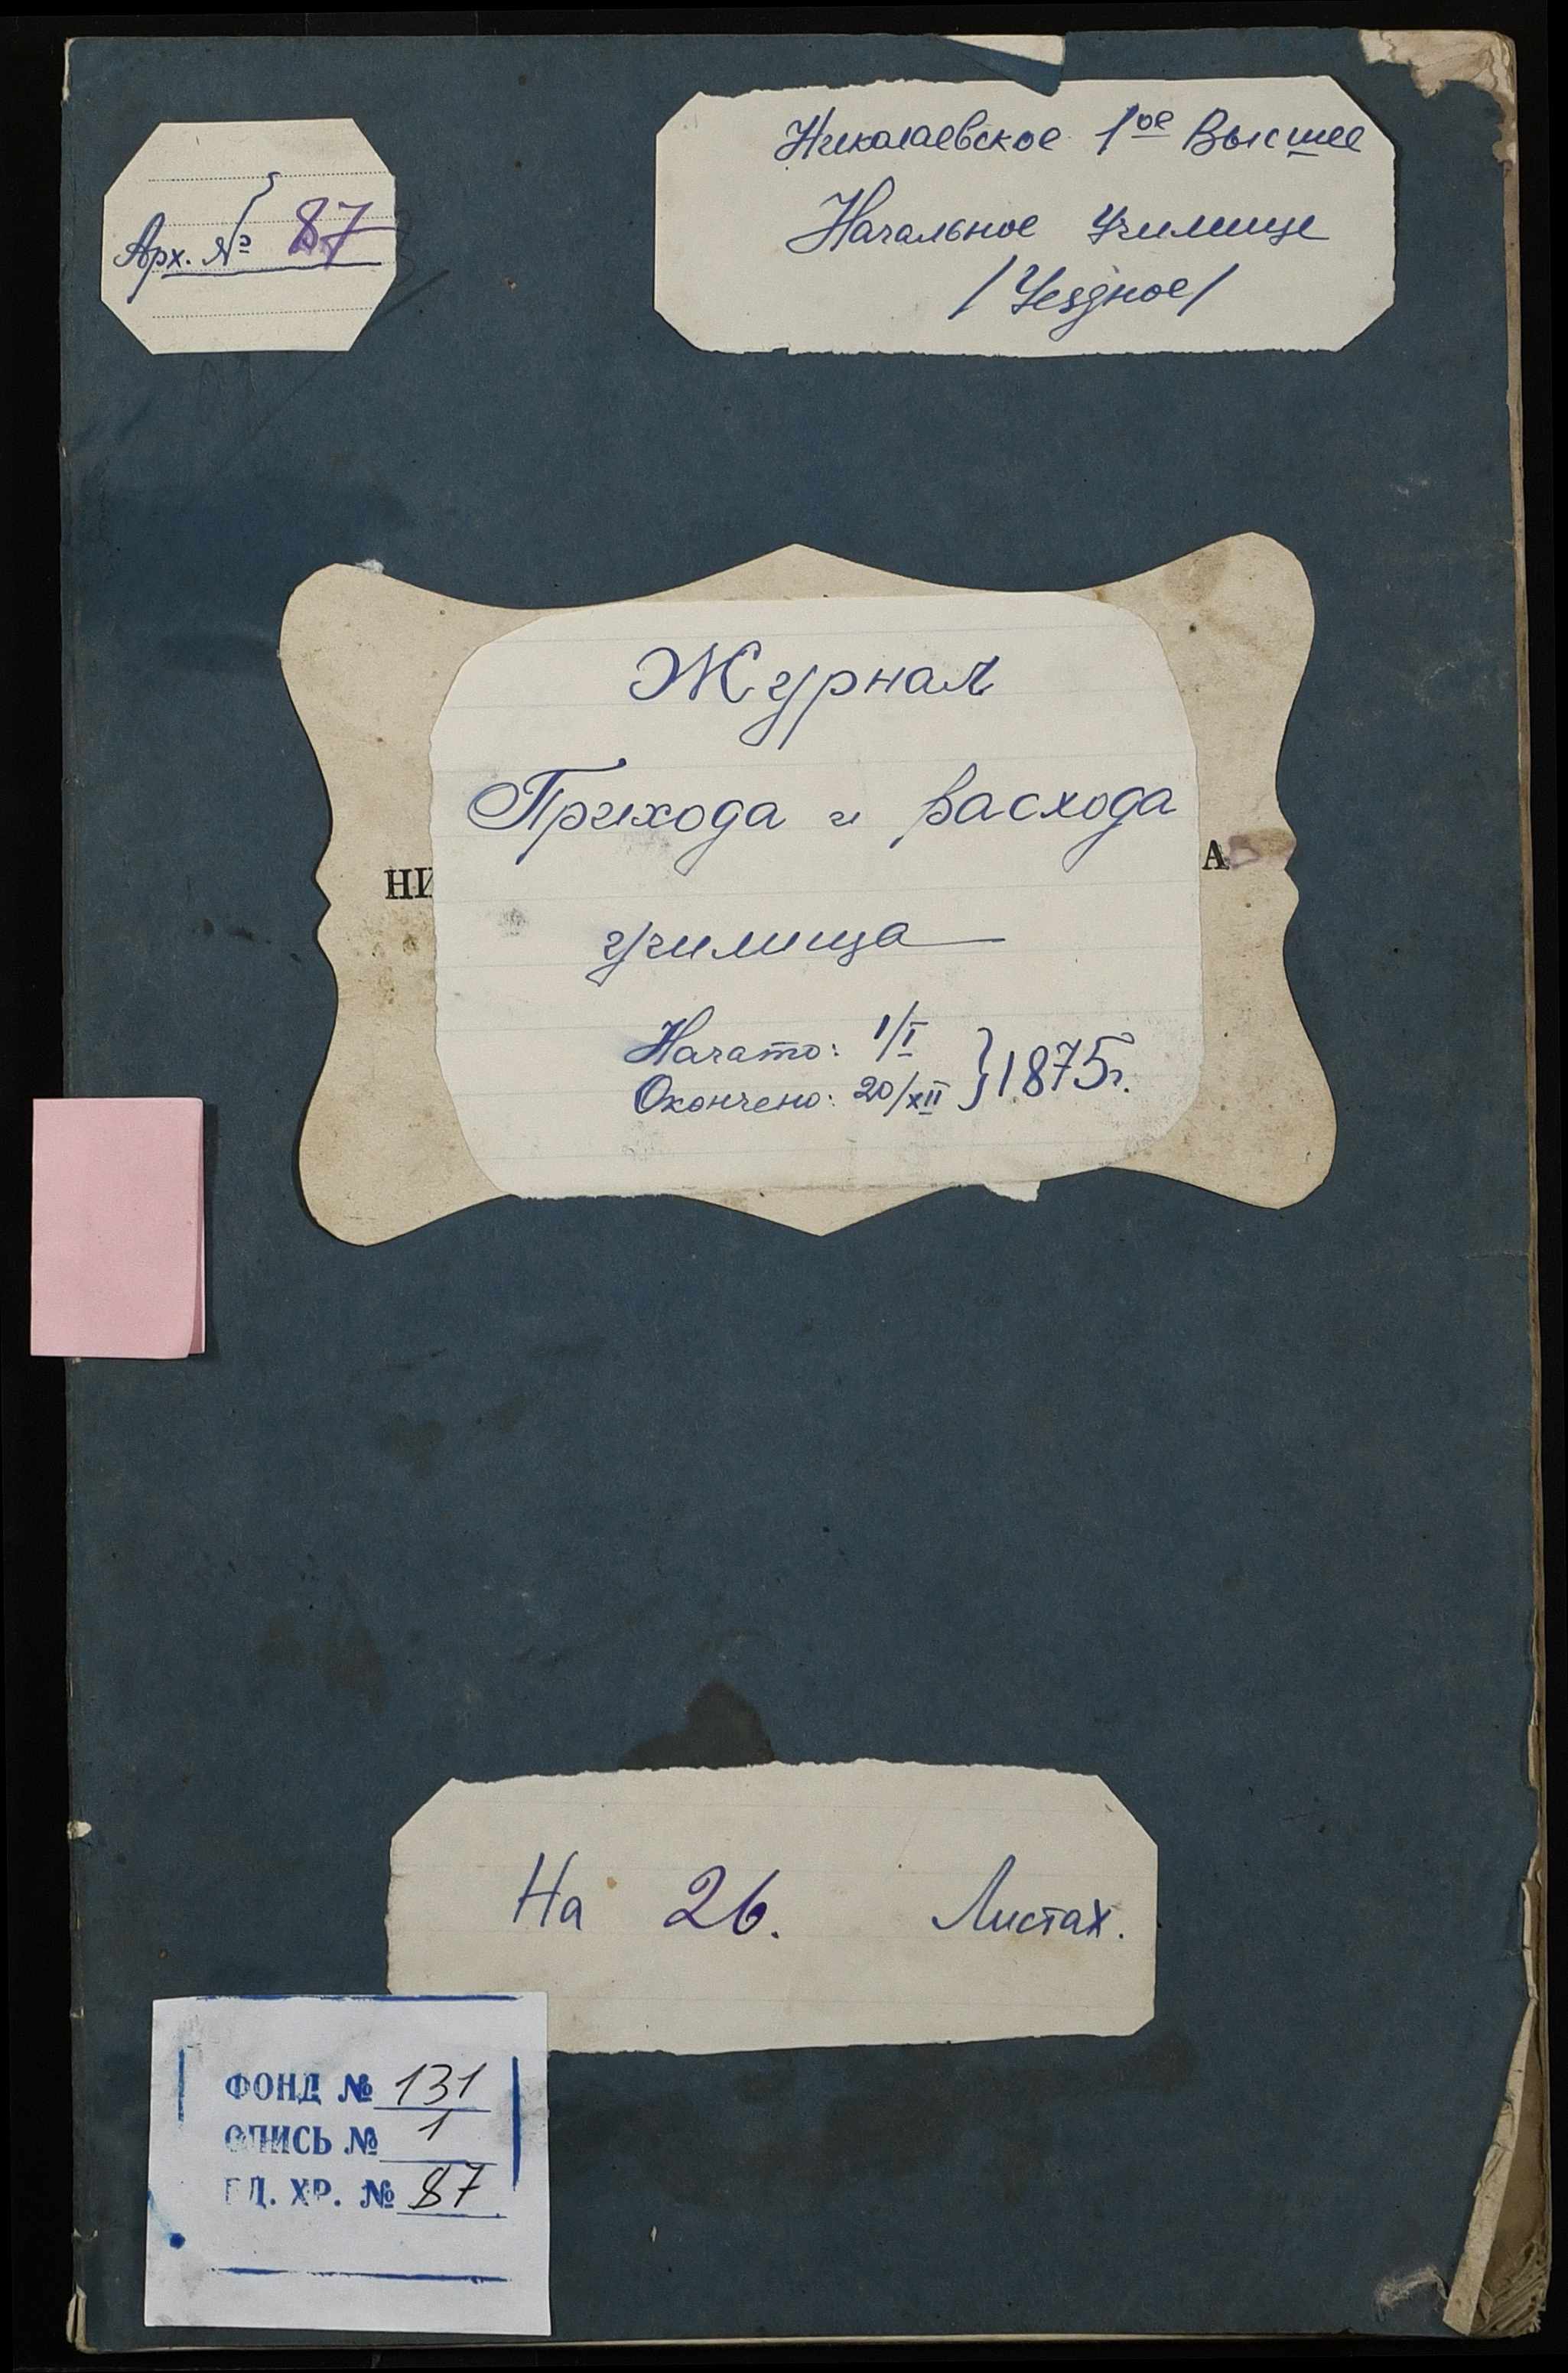 Арх. № 87
Николаевское 1ое Высшее
Начальное Училище
/Уездное/
Журнал
Прихода и расхода
НИ
А
училища
Начато: 1/I
Окончено: 20/XII } 1875г.
На 26. Листах.
ФОНД № 131
ОПИСЬ № 1
ЕД. ХР. № 87